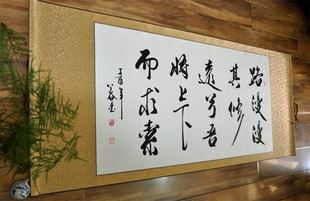 路漫漫
其修
遠兮吾
將上下
而求索